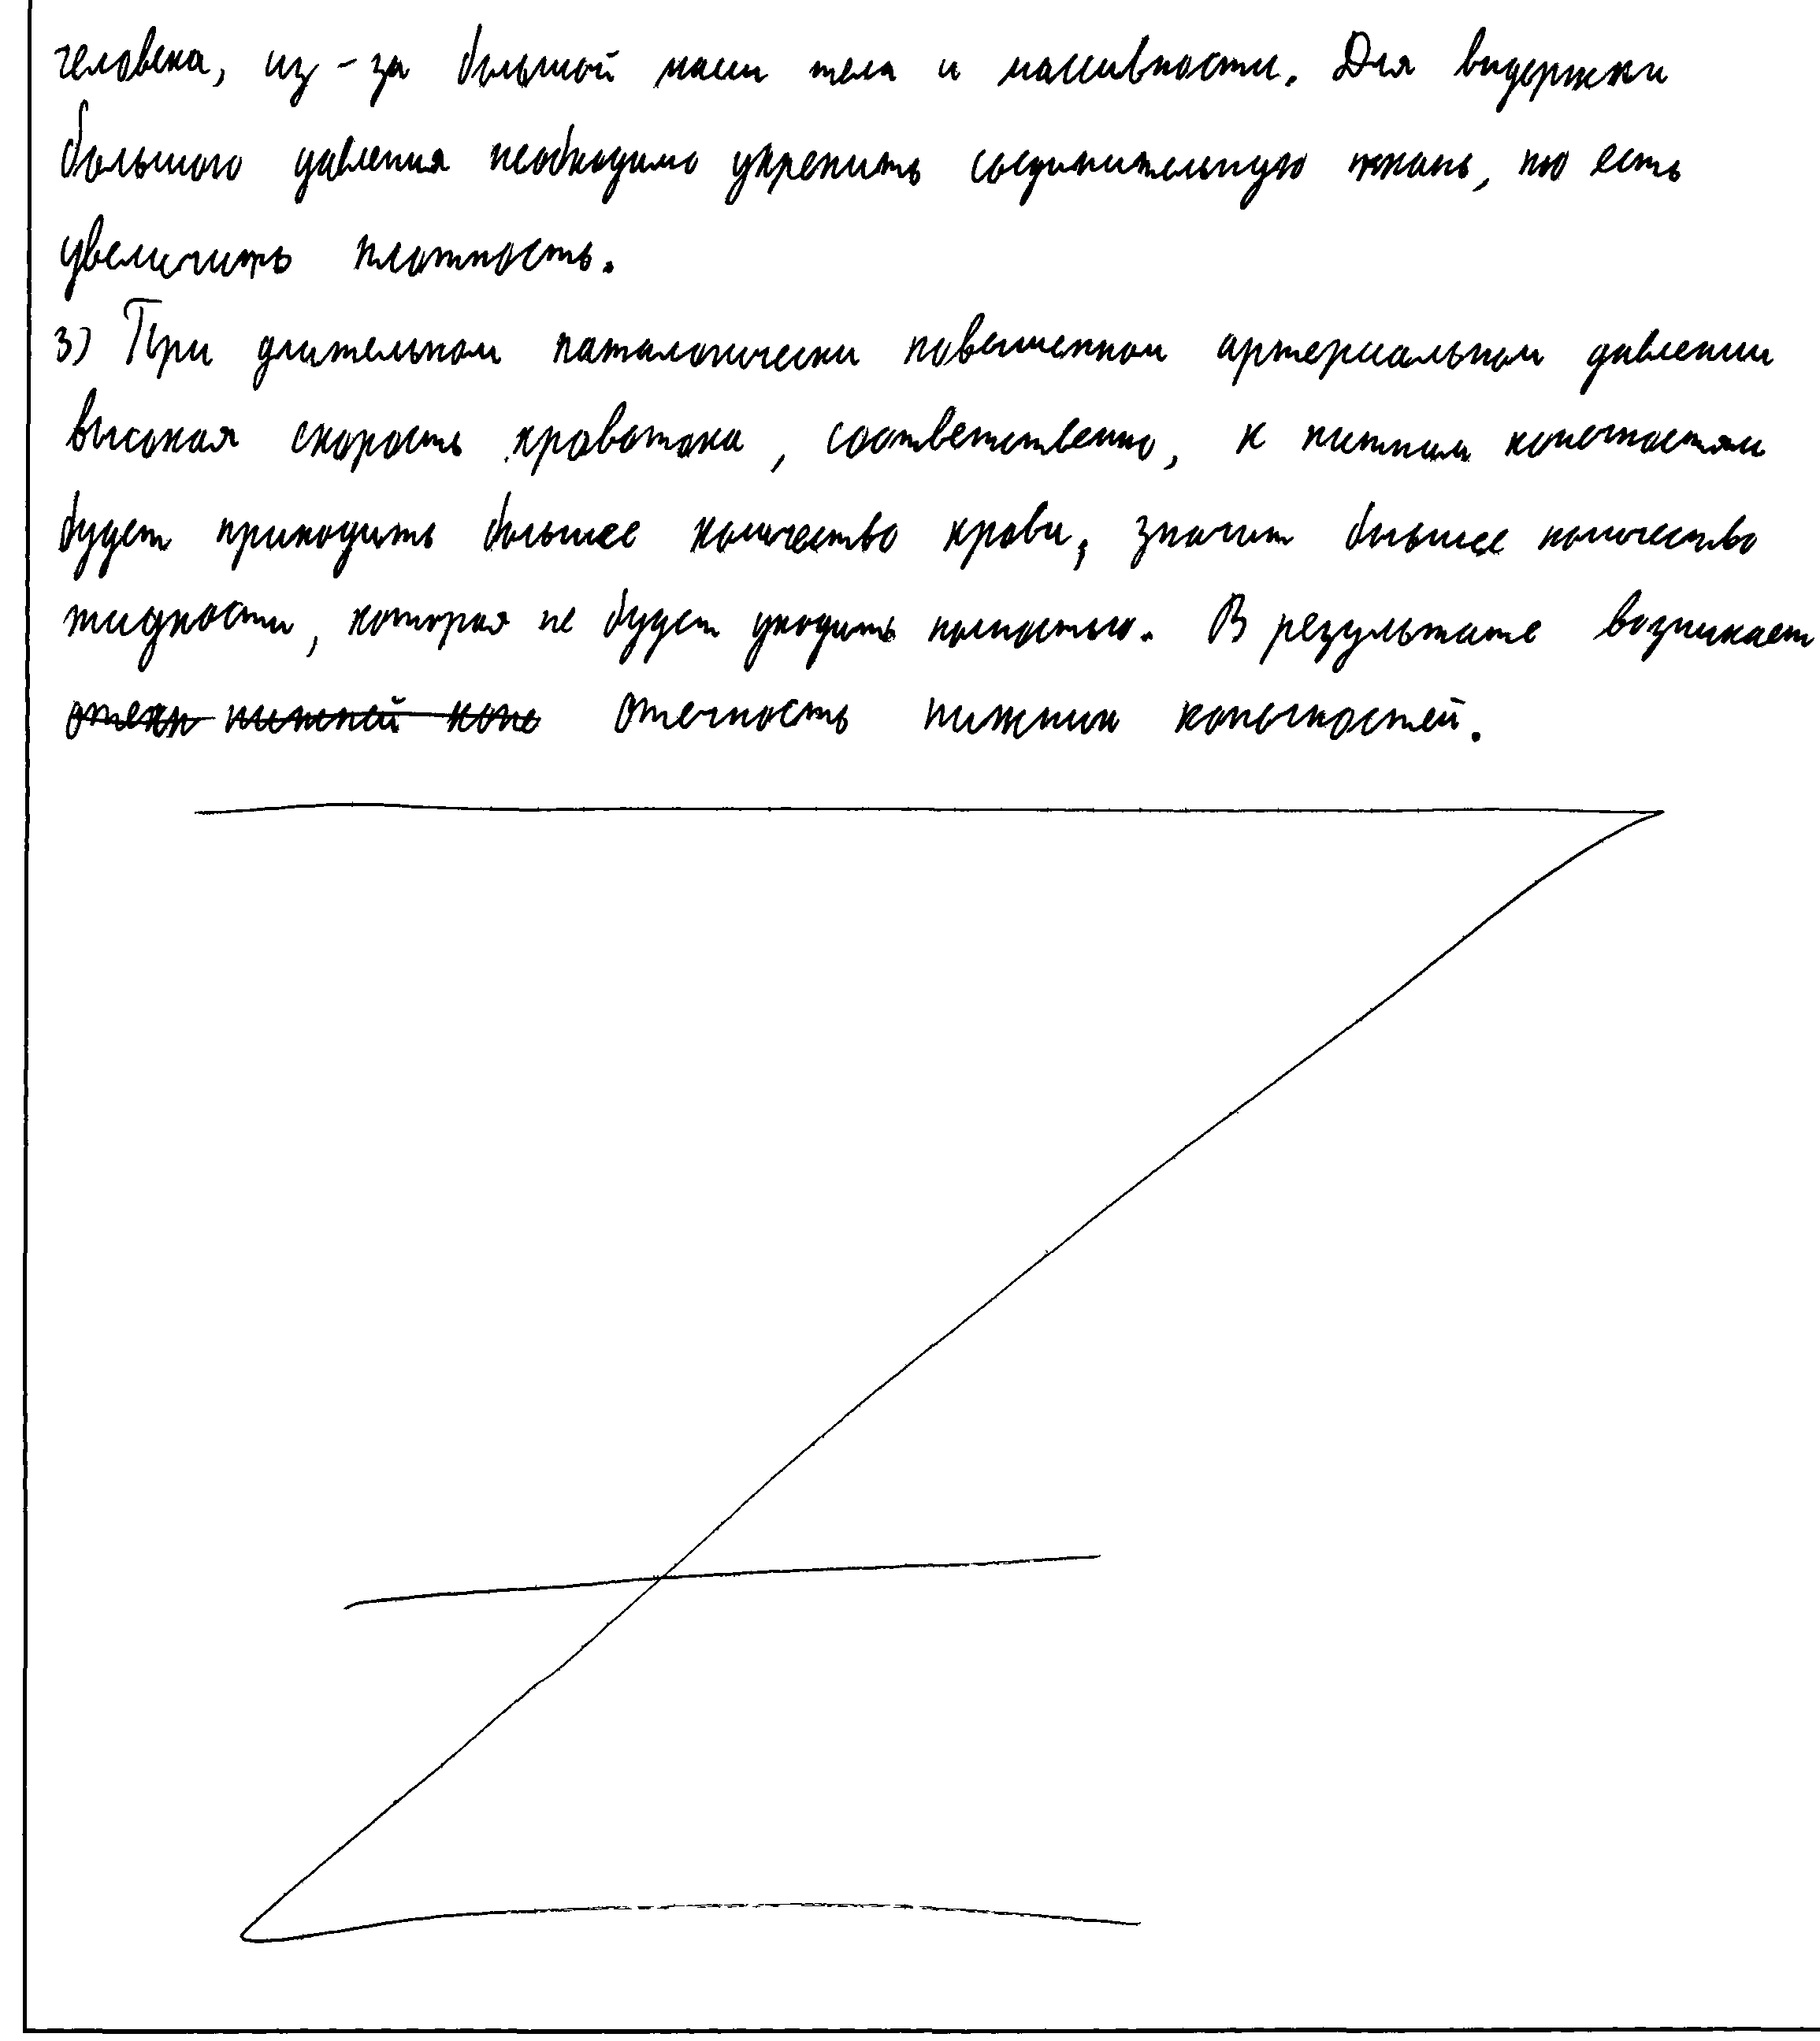 человека, из-за большой массы тела и массивности. Для выдержки
большого давления необходимо укрепить соединительную ткань, то есть
увеличить плотность.
3) При длительном паталогически повышенном артериальном давлении
высокая скорость кровотока, соответственно, к нижним конечностям
будет приходить большее количество крови, значит большее количество
жидкости, которая не будет уходить полностью. В результате возникает
отеки нижней коне отечность нижних конечностей.